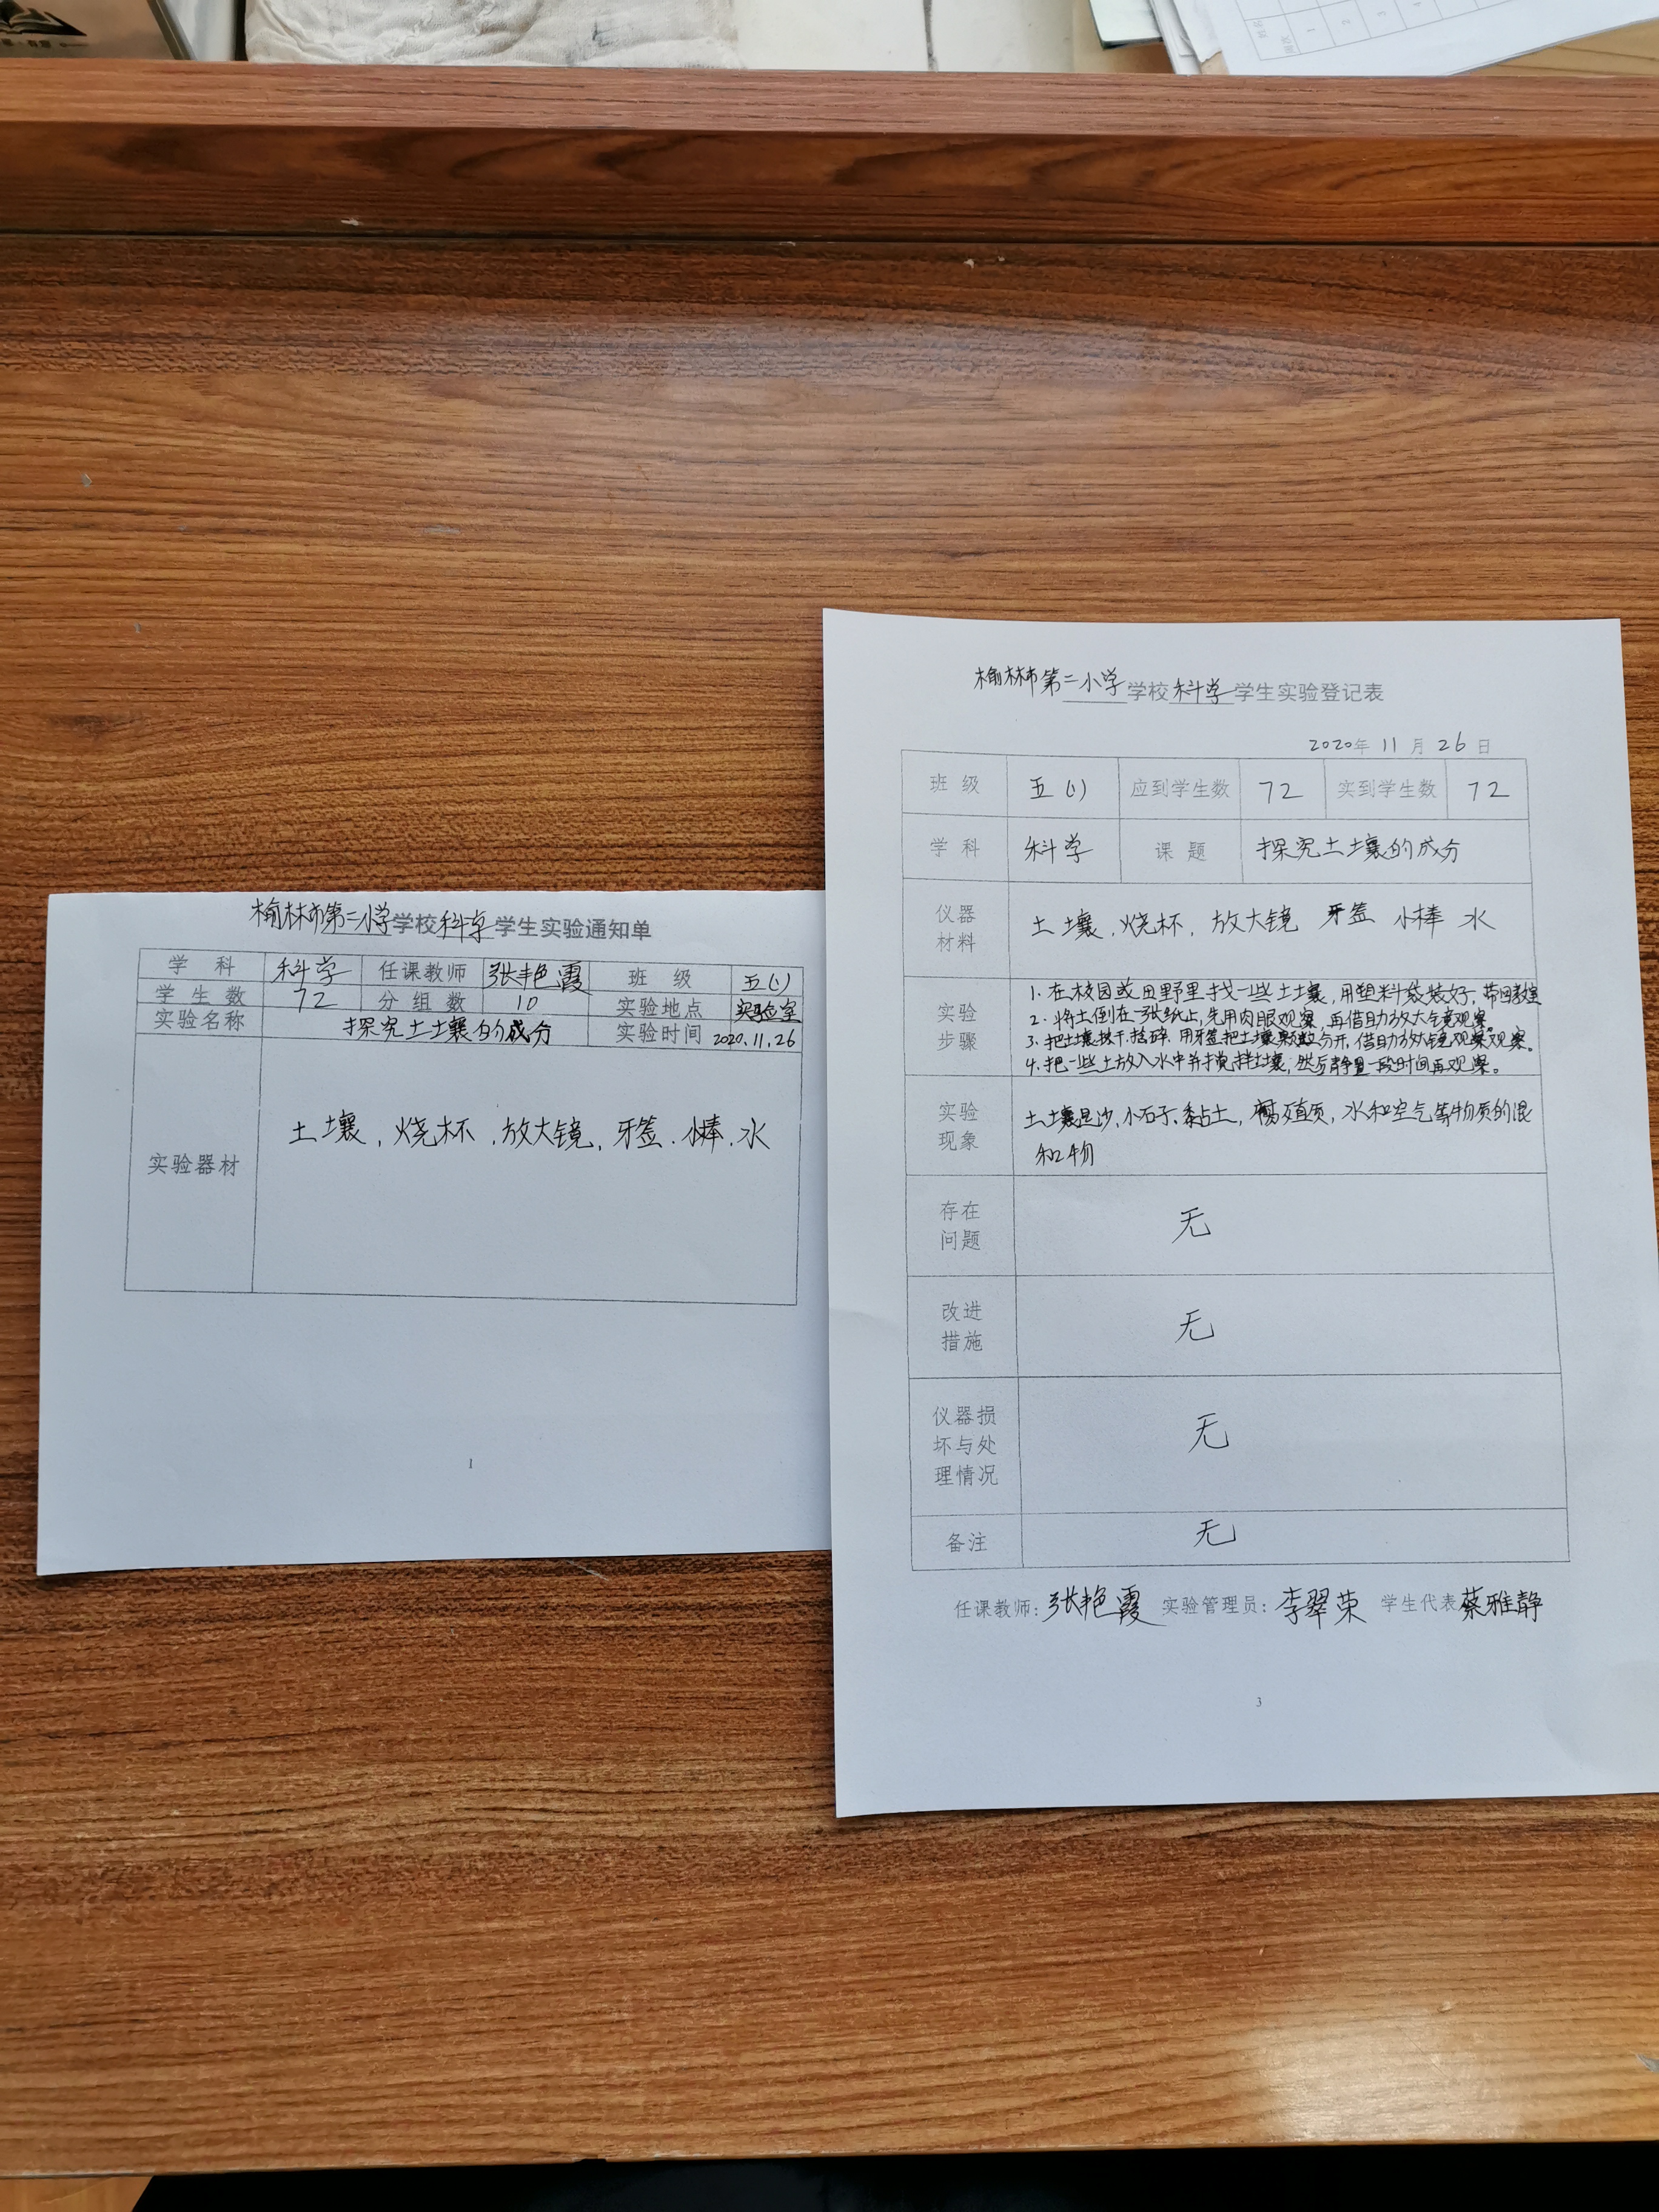 榆林市第二小学学校科学学生实验通知单
学 科 科学 任课教师 张艳霞 班 级 五(1)
学 生 数 72 分 组 数 10 实验地点 实验室
实验名称 探究土壤的成分 实验时间 2020.11.26
实验器材 土壤,烧杯,放大镜,牙签.小棒.水
1
榆林市第二小学学校科学学生实验登记表
2020年 11 月 26 日
班 级 五(1) 应到学生数 72 实到学生数 72
学 科 科学 课 题 探究土壤的成分
仪器
材料
土壤,烧杯,放大镜 牙签 小棒 水
实验
步骤
1.在校园或田野里找一些土壤,用塑料袋装好,带回教室
2.将土倒在一张纸上,先用肉眼观察,再借助放大镜观察。
3.把土壤 干 碎.用牙签把土壤颗粒分开,借助放大镜观察观察。
4.把一些土放入水中并搅拌土壤,然后静置一段时间再观察。
实验
现象
土壤是沙,小石子、黏土,腐殖质,水和空气等物质的混
和物
存在
问题
无
改进
措施
无
仪器损
坏与处
理情况
无
备注 无
任课教师:张艳霞 实验管理员:李翠荣 学生代表 蔡雅静
3